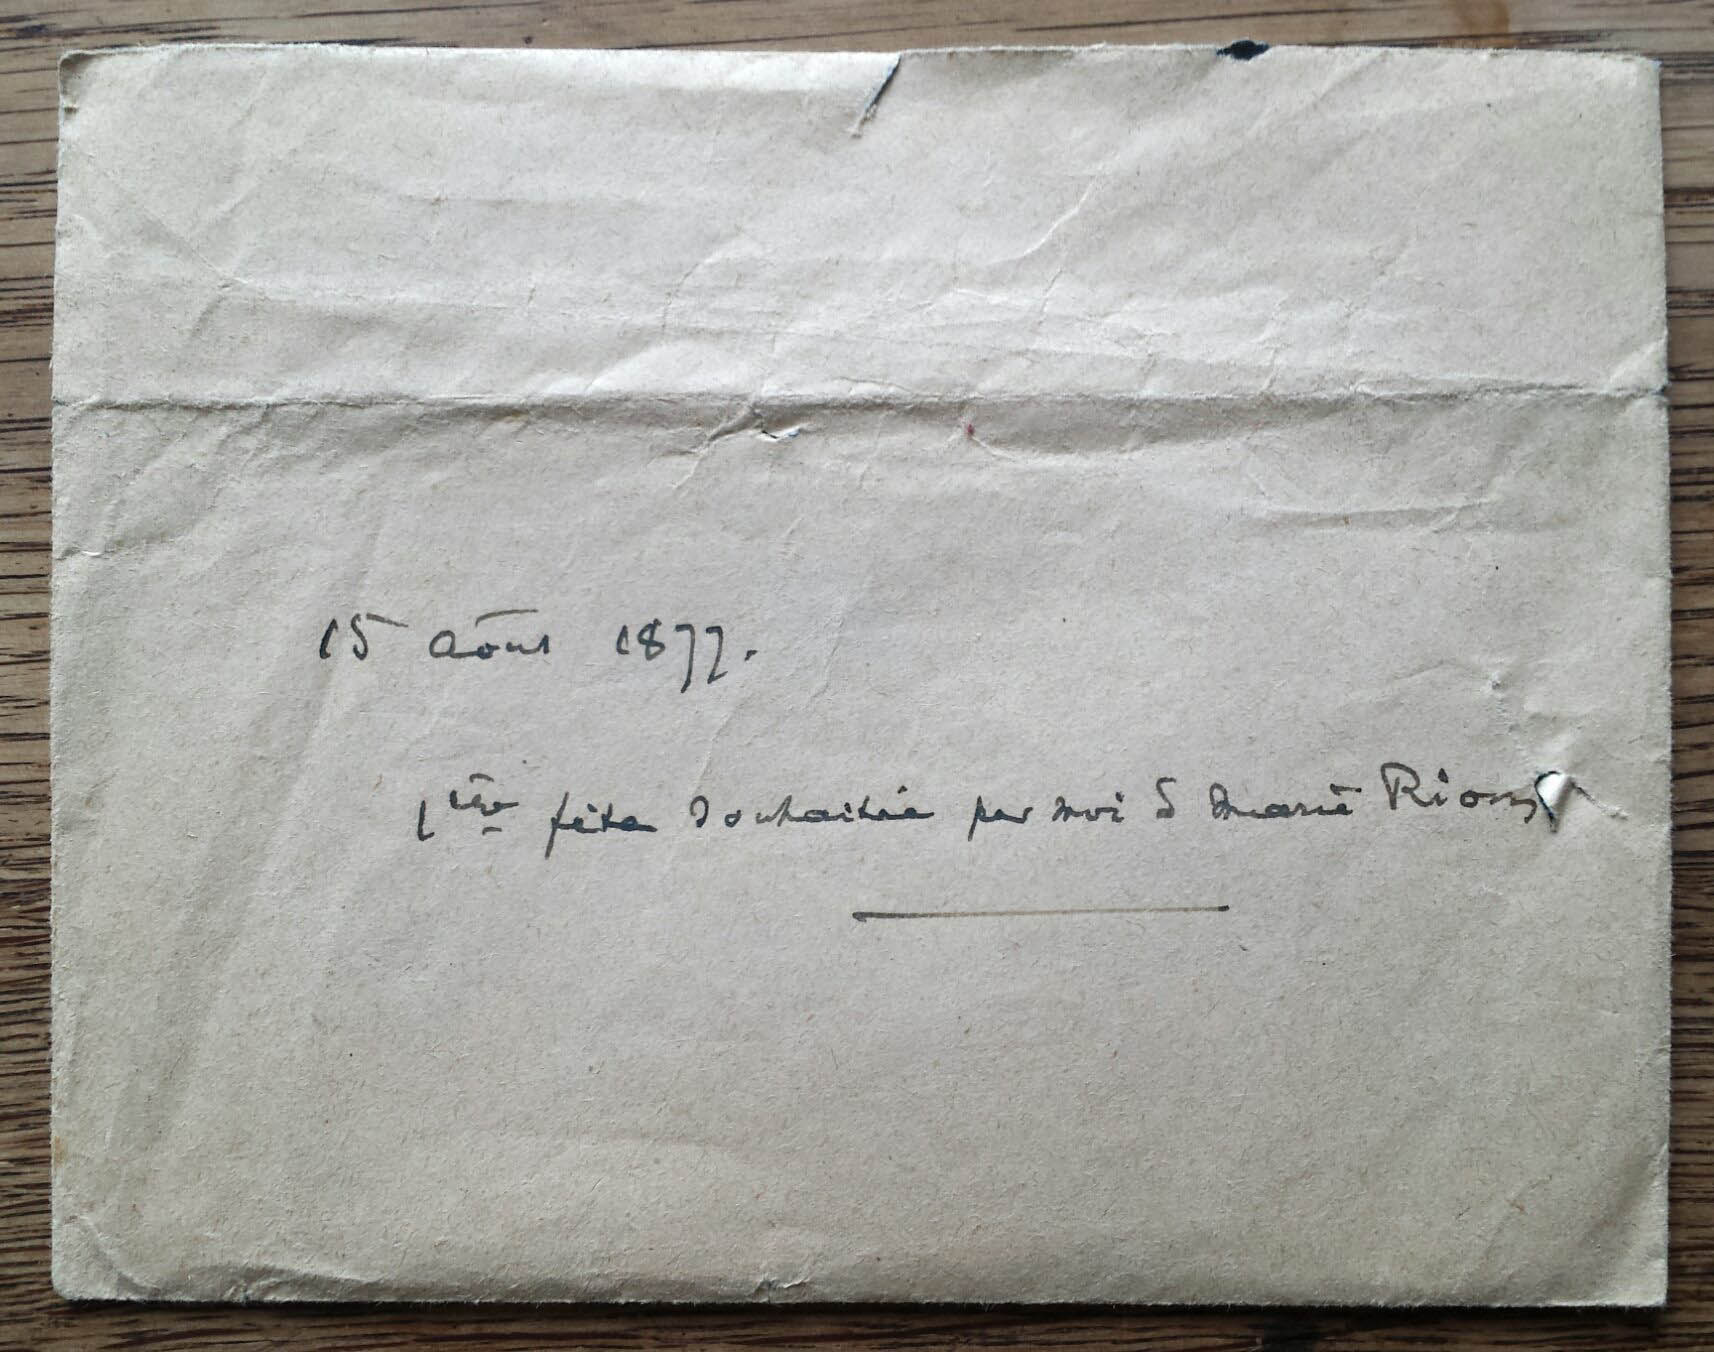 15 Août 1877.
1ère fête souhaitée par moi à Marie